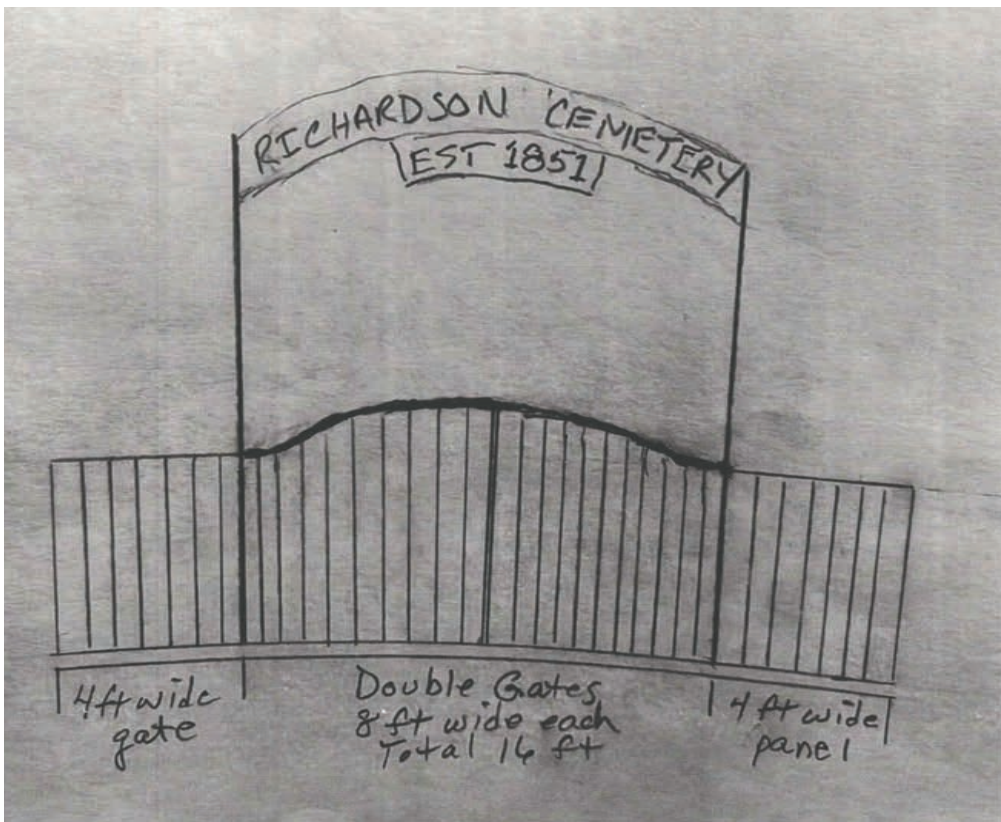 RICHARDSON CEMETERY
EST 1851
4 ft wide
gate
Double Gates
8 ft wide each
Total 16 ft
4 ft wide
panel